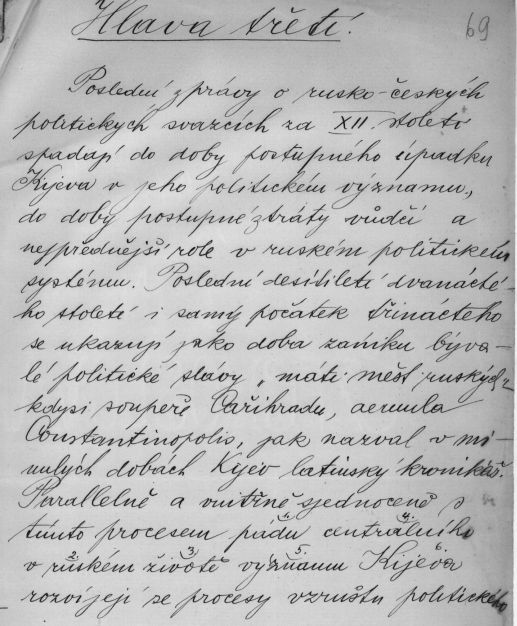 Hlava třetí.
69
Poslední zprávy o rusko-českých
politických svazcích za XII. století
spadají do doby postupného úpadku
Kijeva v jeho politickém významu,
do doby postupné ztráty vůdčí a
nejpřednější role v ruském politickém
systému. Poslední desítiletí dvanácté-
ho století i samý počátek třináctého
se ukazují jako doba zániku býva-
lé politické slávy „máti měst ruských",
kdysi soupeře Cařihradu, aemula
Constantinopolis, jak nazval v mi-
nulých dobách Kijev latinský kronikář.
Parallelně a vnitřně sjednoceně s
tímto procesem pádu centrálního
v ruském životě významu Kijeva
rozvíjejí se procesy vzrůstu politického